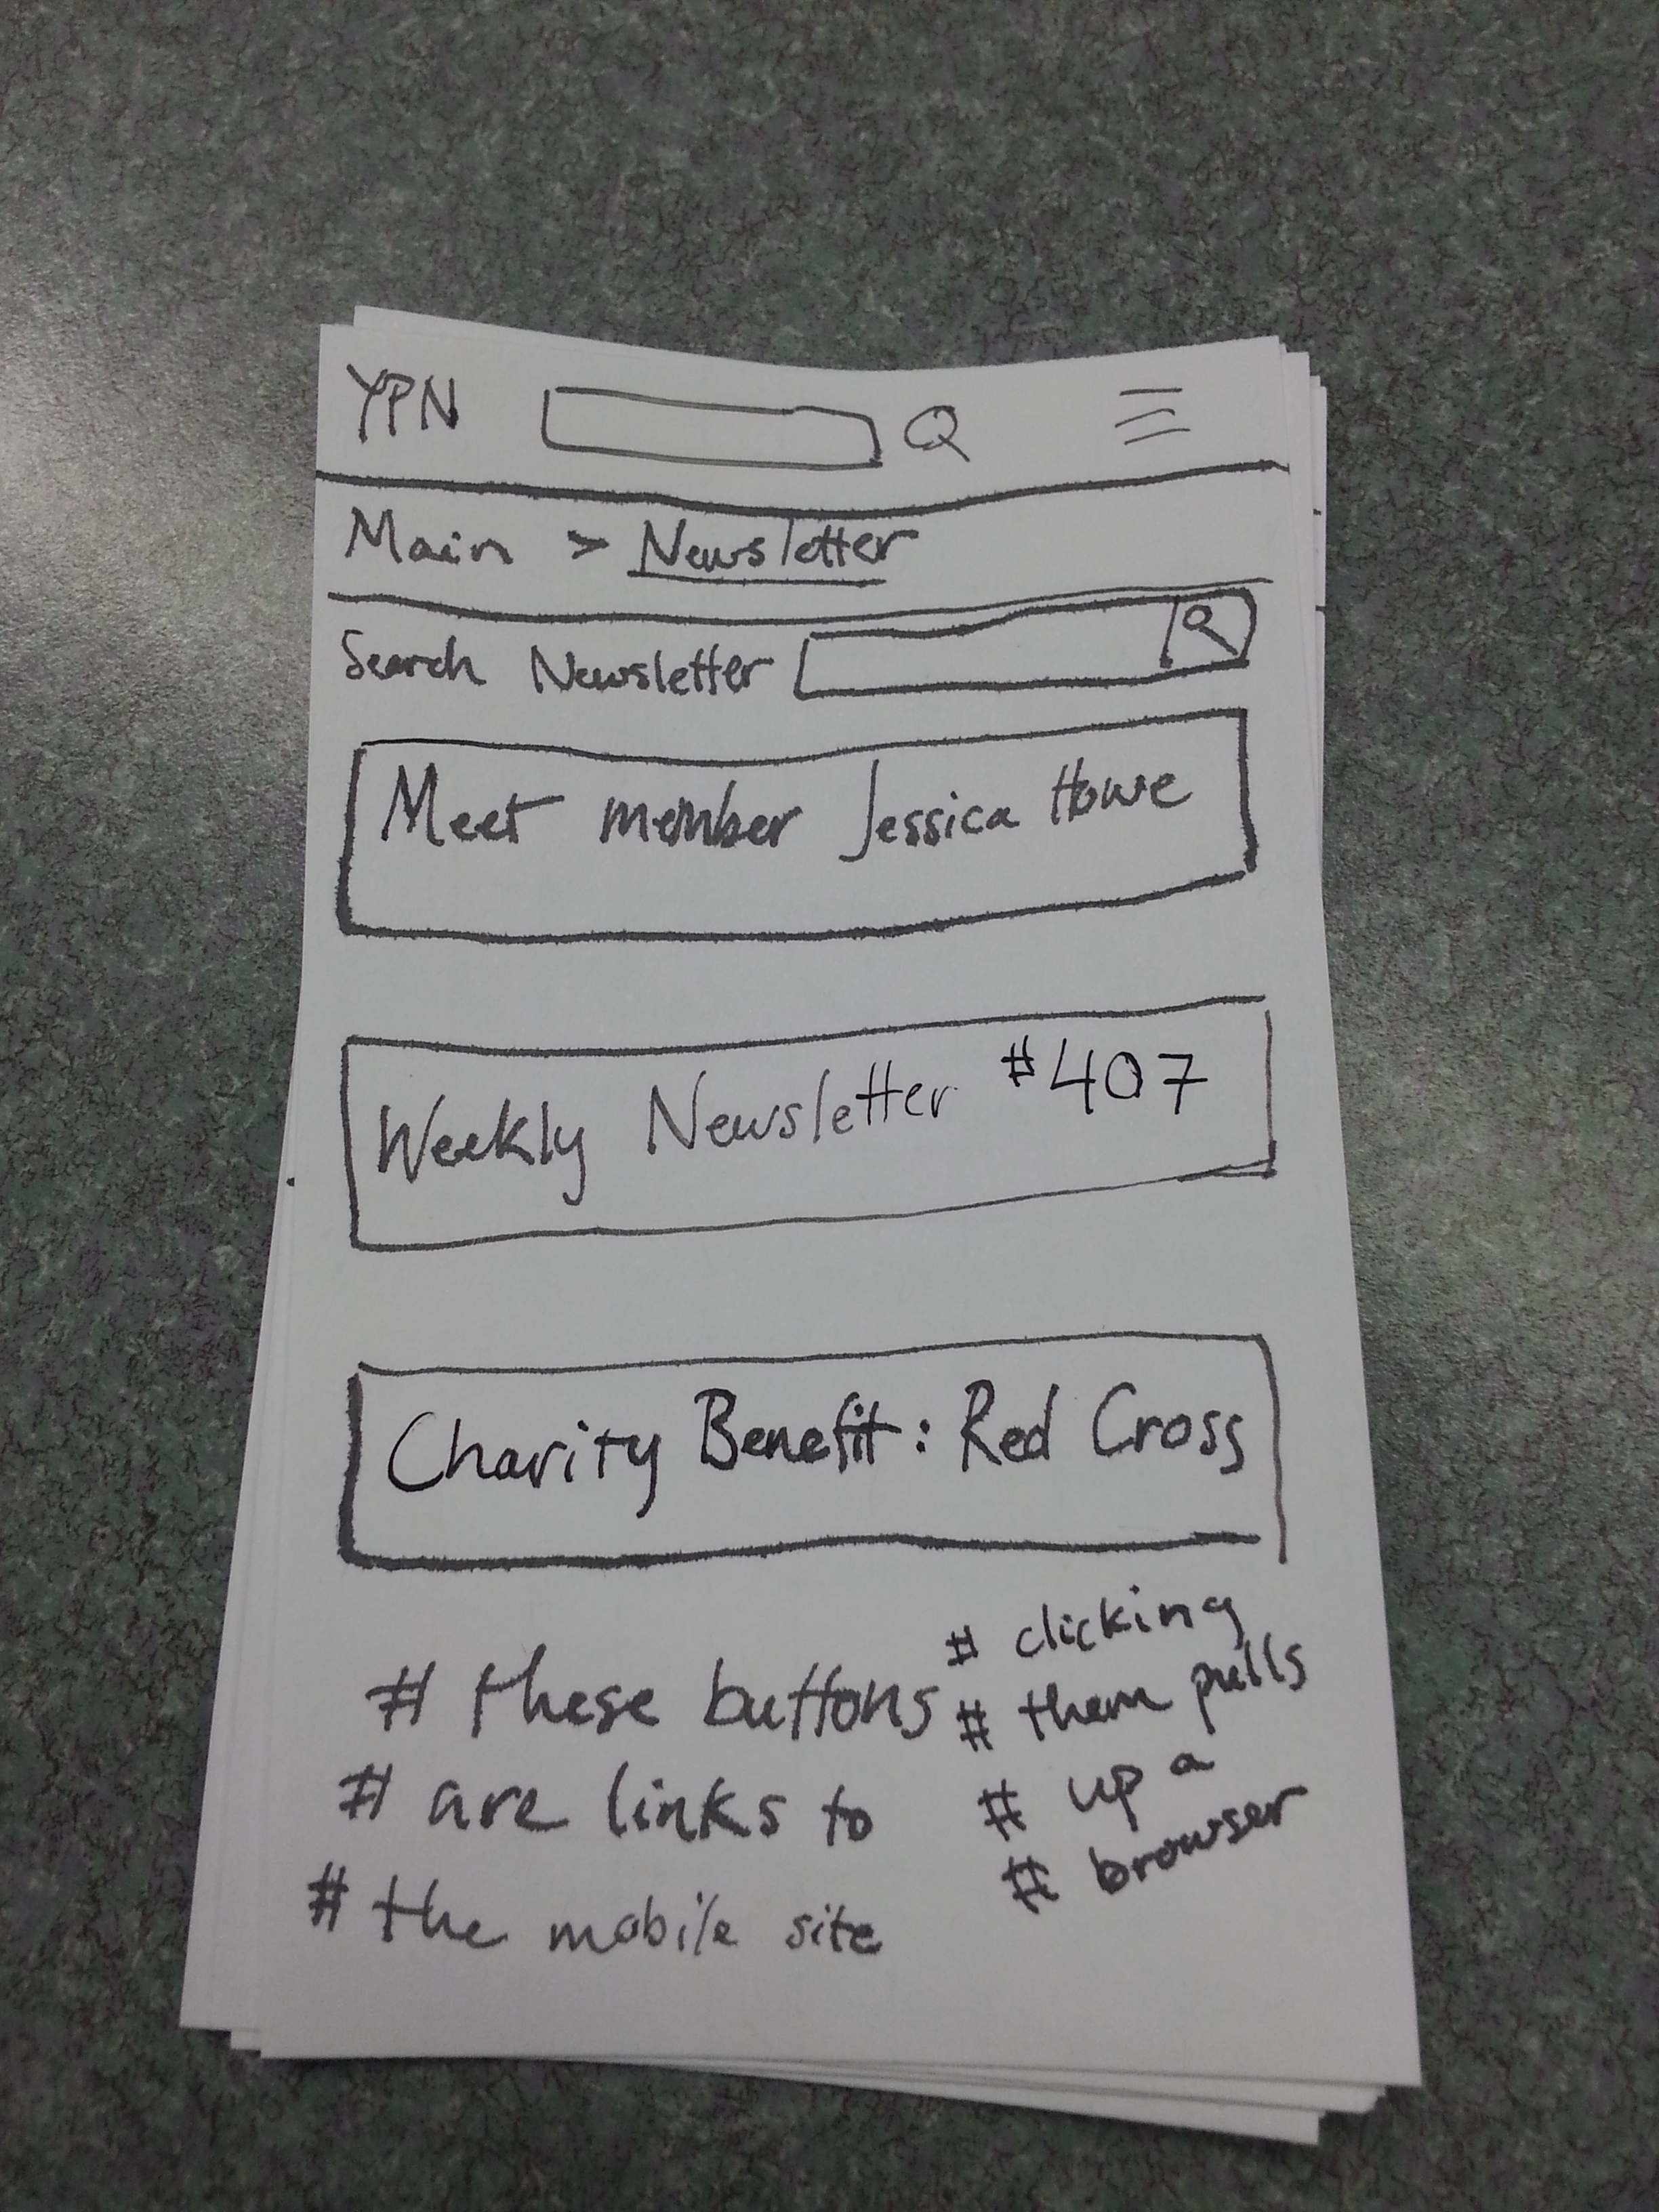 YPN
Main > Newsletter
Search Newsletter
Meet member Jessica Howe
Weekly Newsletter #407
Charity Benefit: Red Cross
# these buttons
# are links to
# the mobile site
# clicking
# them pulls
# up a
# browser